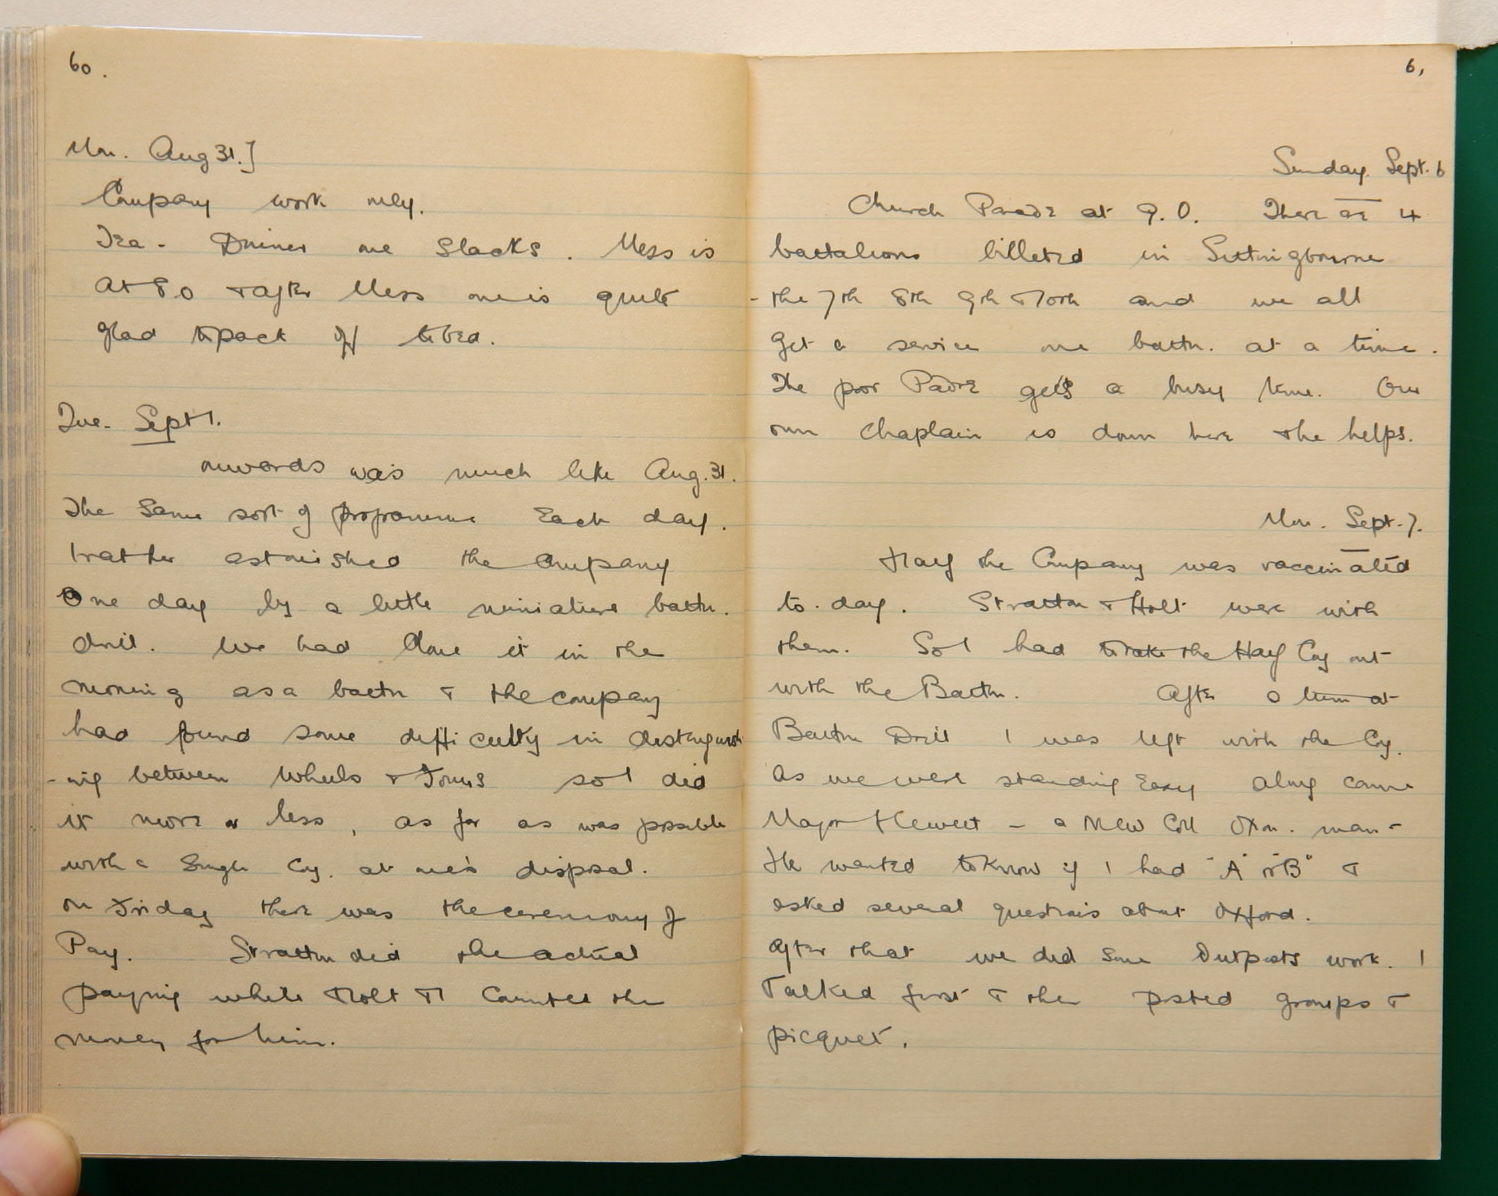 60.
Mon. Aug 31.]
Company work only.
Tea - Dinner one Slacks. Mess is
at 8.0 & after Mess one is quite
glad to pack off to bed.
Tue. Sept 1.
onwards was much like Aug. 31.
The same sort of programme Each day.
I rather astonished the Company
One day by a little miniature battn.
drill. We had done it in the
morning as a battn & the company
had found some difficulty in distinguish
-ing between Wheels & Forms so I did
it more or less, as far as was possible
with a Single Coy. at one's disposal.
On Friday there was the ceremony of
Pay. Stratton did the actual
paying while Holt & I Counted the
money for him.
61
Sunday. Sept. 6
Church Parade at 9.0. There are 4
battalions billeted in Sittingbourne
- the 7th 8th 9th & 10th and we all
get a service one battn. at a time.
The poor Padre gets a busy time. Our
own Chaplain is down here & he helps.
Mon. Sept. 7.
Half the Company was vaccinated
to-day. Stratton & Holt were with
them. So I had to take the Half Coy out
with the Battn. After a turn at
Battn Drill I was left with the Coy.
As we were standing Easy along came
Major Hewett - a New Coll Oxon. man -
He wanted to know if I had "A" or "B" &
asked several questions about Oxford.
After that we did some Outposts work. I
Talked first & then posted groups &
picquet.